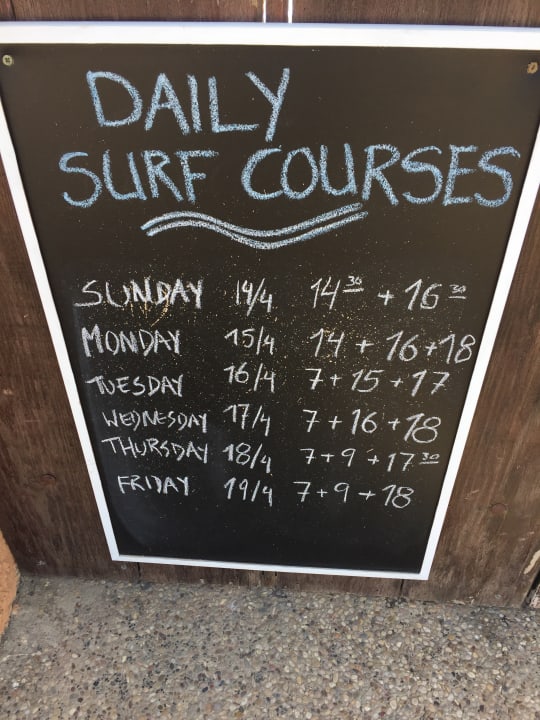 DAILY
SURF COURSES
SUNDAY 14/4 14³⁰ + 16³⁰
MONDAY 15/4 14 + 16 + 18
TUESDAY 16/4 7 + 15 + 17
WEDNESDAY 17/4 7 + 16 + 18
THURSDAY 18/4 7 + 9 + 17³⁰
FRIDAY 19/4 7 + 9 + 18